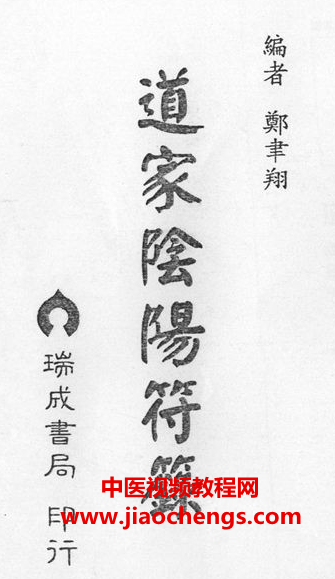 編者 鄭聿翔
道家陰陽符籙
瑞成書局 印行
中医视频教程网
www.jiaochengs.com